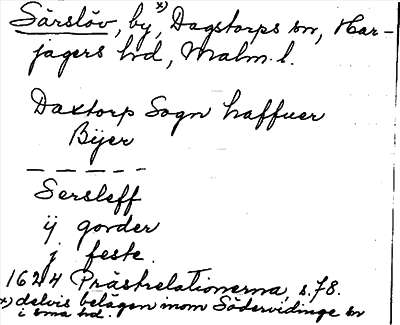 Särslöv, by, x) Dagstorps sn, Har-
jagers hd, Malm. l.
Daxtorp Sogn haffuer
Bÿer
Sersleff
ij gorder
j feste.
1624 Prästrelationerna, s. 78.
x) delvis belägen inom Södervidinge sn
i sma hd.